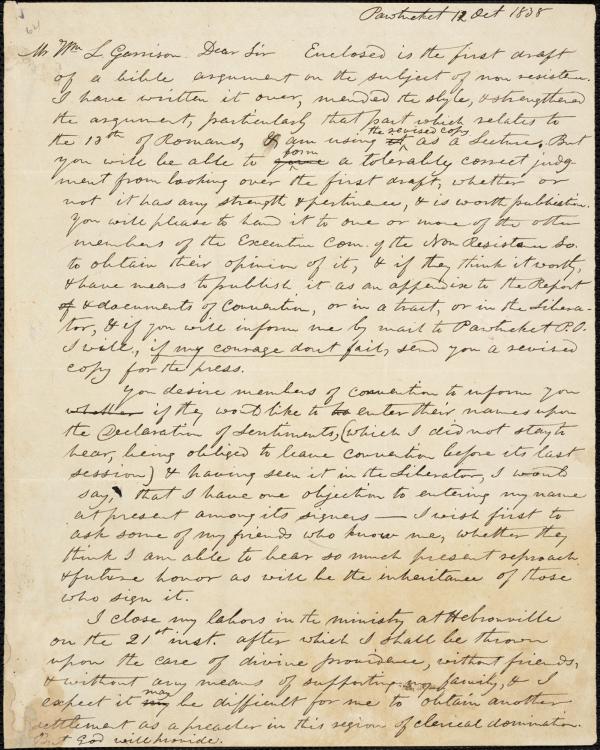 Pawtucket 12 Oct 1838
Mr Wm L Garrison. Dear Sir Enclosed is the first draft
of a bible argument on the subject of non resisten.
I have written it over, mended the style, & strengthened
the argument, particularly that part which relates to
the revised copy
the 13th of Romans, & am using it as a Lecture. But
form
you will be able to a tolerably correct judg-
ment from looking over the first draft, whether or
not it has any strength & pertinence, & is worth publication.
You will please to hand it to one or more of the other
members of the Executive Com. of the Non Resistance So.
to obtain their opinion of it, & if they think it worth,
& have means to publish it as an appendix to the Report
of & documents of Convention, or in a tract, or in the Libera-
tor, & if you will inform me by mail to Pawtucket P.O.
I will, if my courage dont fail, send you a revised
copy for the press.
You desire members of convention to inform you
whether if they would like to enter their names upon
the Declaration of Sentiments, (which I did not stay to
hear, being obliged to leave convention before its last
session) & having seen it in the Liberator, I would
say, that I have one objection to entering my name
at present among its signers — I wish first to
ask some of my friends who know me, whether they
think I am able to bear so much present reproach
& future honor as will be the inheritance of those
who sign it.
I close my labors in the ministry at Hebronville
on the 21st inst. after which I shall be thrown
upon the care of divine providence, without friends,
& without any means of supporting my family, & I
may
expect it be difficult for me to obtain another
settlement as a preacher in this region of clerical domination.
But God will provide.